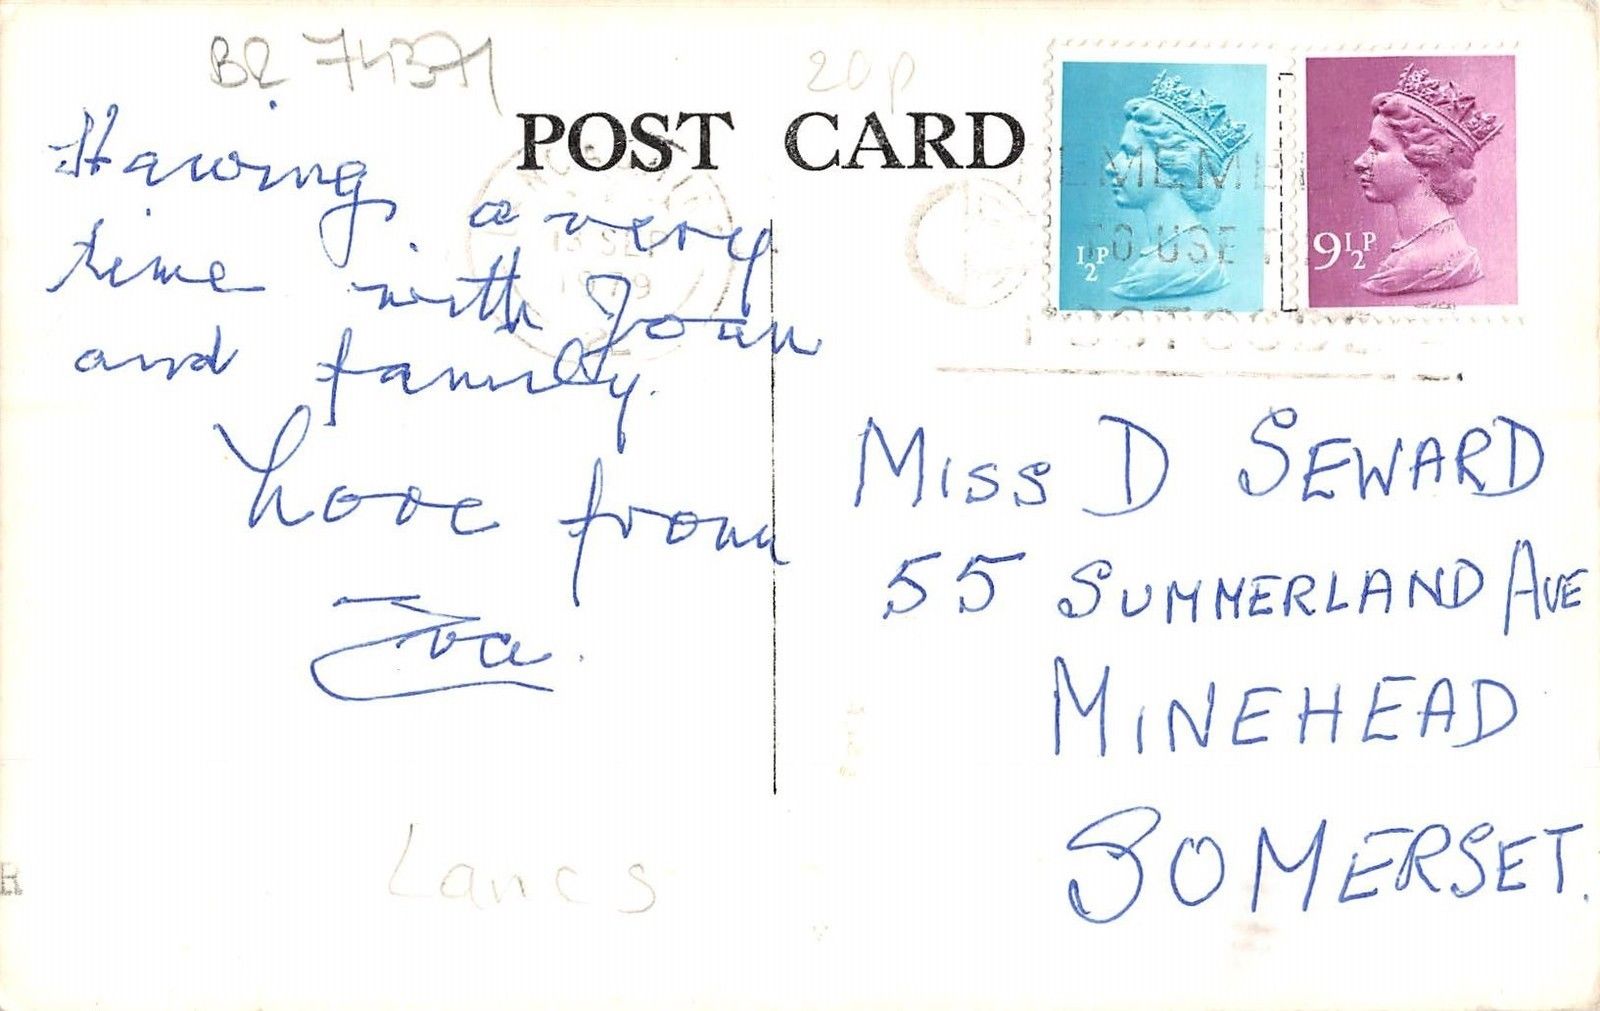 BR 74371
20p
POST CARD
Having a very
time with Joan
and family.
Love from
Eva.
13 SEP
1979
REMEMBER
TO USE THE
POSTCODE
½P
9½P
MISS D SEWARD
55 SUMMERLAND AVE
MINEHEAD
SOMERSET.
Lancs